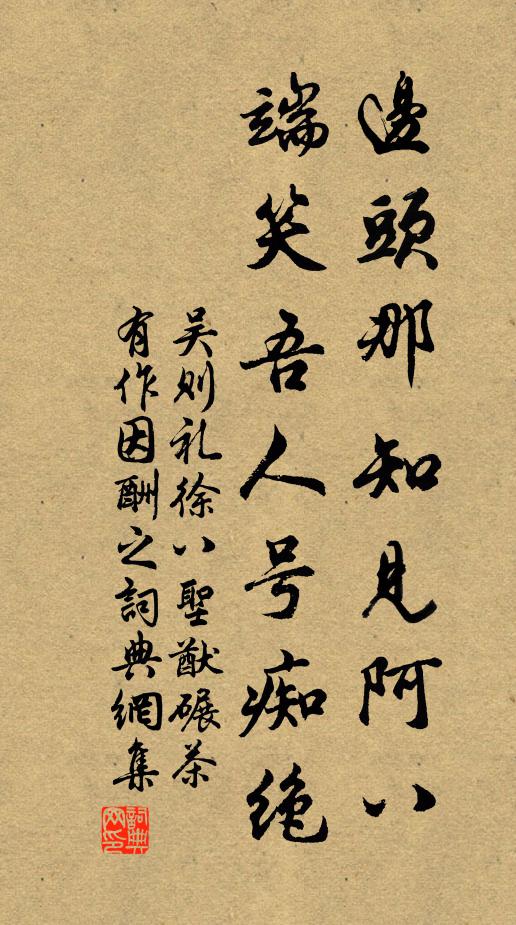 邊頭那知見阿八
端笑吾人号痴绝
吴则礼徐八聖猷碾茶
有作因酬之詞典網集
詞典网印